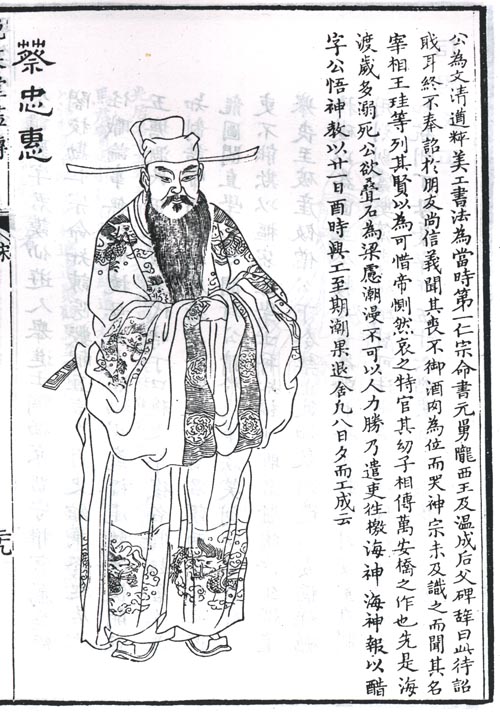 公為文清遒粹美工書法為當時第一仁宗命書元舅隴西王及温成后父碑辭曰此待詔
耳終不奉詔於朋友尚信義聞其喪不御酒肉為位而哭神宗未及識之而聞其名
宰相王珪等列其賢以為可惜帝惻然哀之特官其幼子相傳萬安橋之作也先是海
渡歲多溺死公欲疊石為梁慮潮漫不可以人力勝乃遣吏徃檄海神海神報以醋
字公悟神教以廿一日酉時興工至期潮果退舍凡八日夕而工成云
蔡忠惠